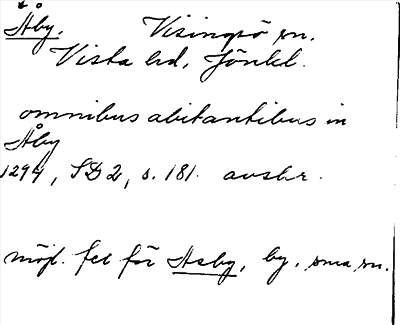 *Åby. Visingsö sn.
Vista hd, Jönkl.
omnibus abitantibus in
Åby
1294, SD 2, s. 181. avskr.
möjl. fel för Asby, by, sma sn.